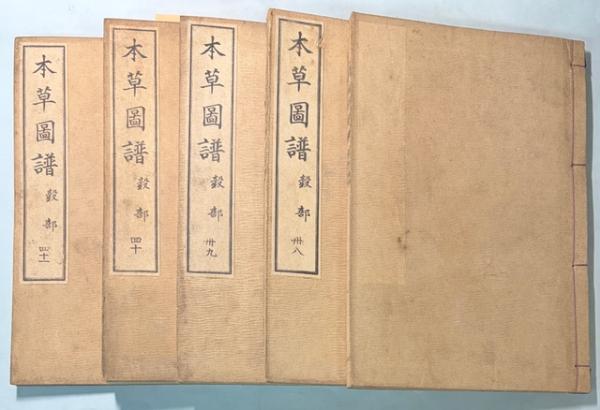 本草圖譜 穀部 卅八
本草圖譜 穀部 卅九
本草圖譜 穀部 四十
本草圖譜 穀部 四十一